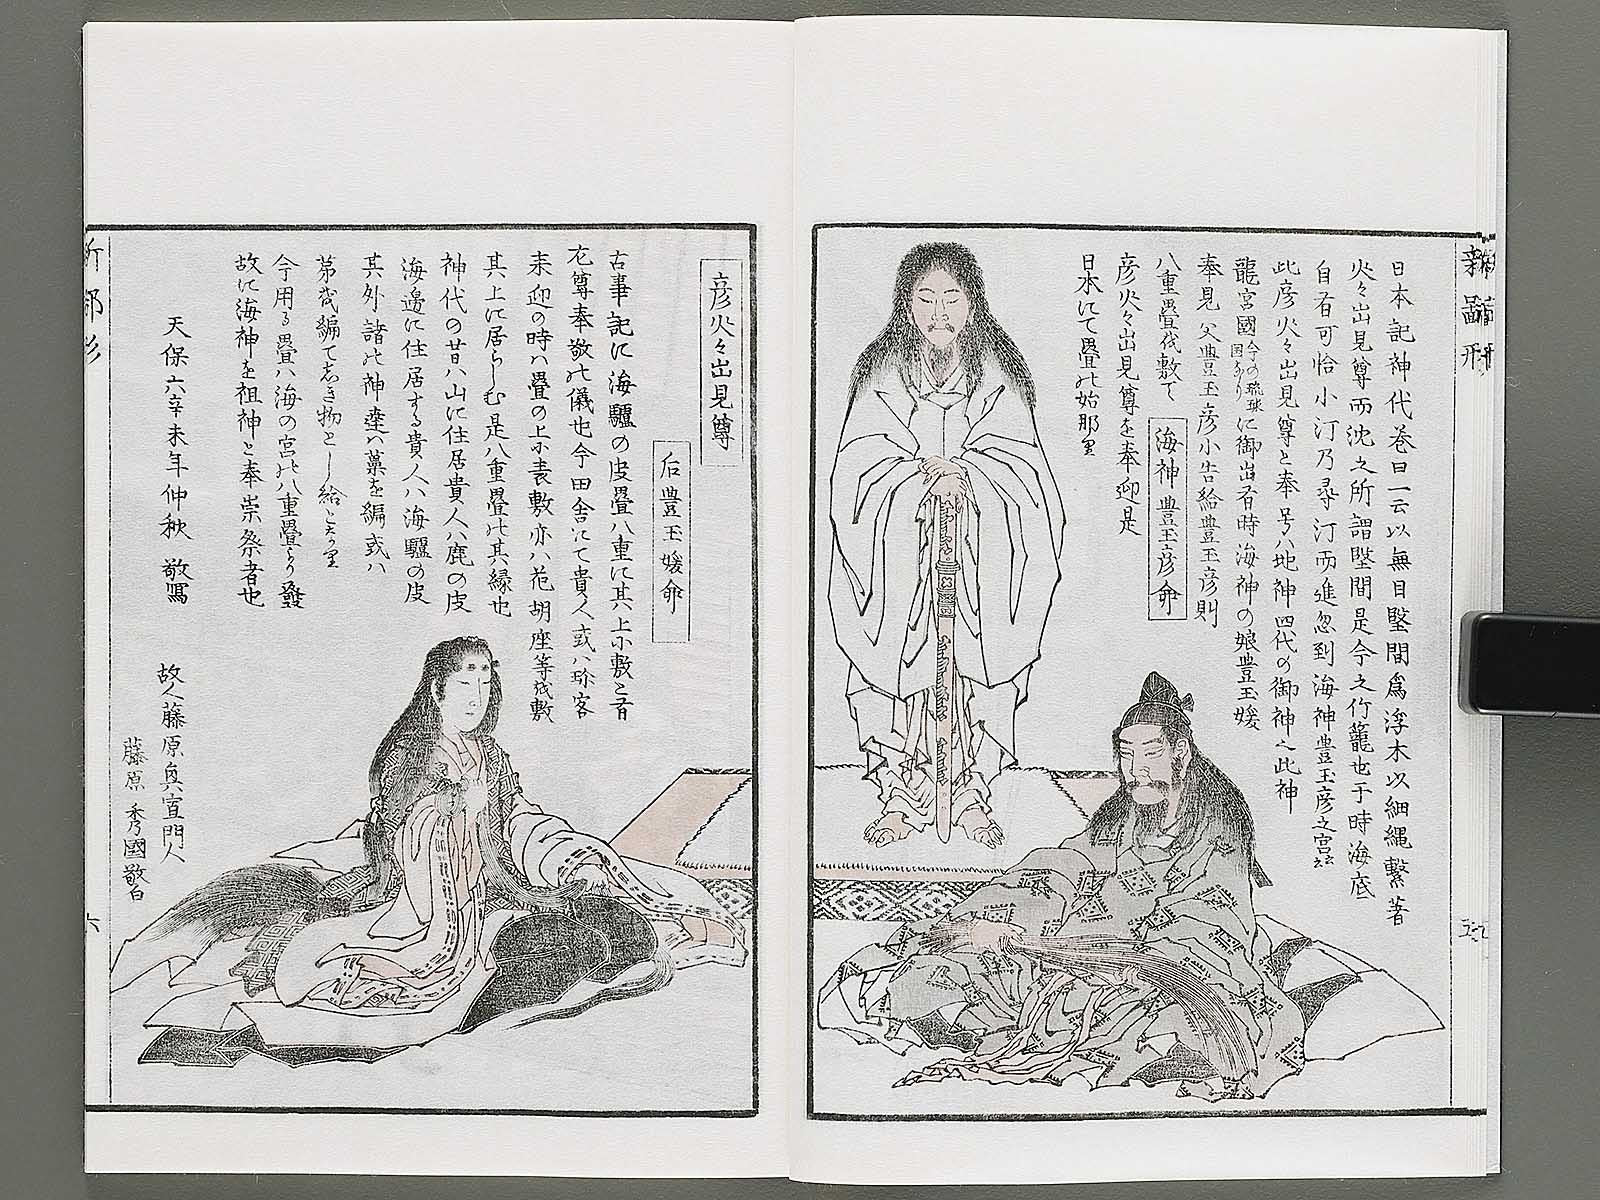 新雛形
日本記神代巻曰一云以無目堅間為浮木以細縄繋著
火々出見尊而沈之所謂堅間是今之竹籠也于時海底
自有可怡小汀乃尋汀而進忽到海神豊玉彦之宮云云
此彦火々出見尊と奉号ハ地神四代の御神也此神
龍宮國今の琉球国なりに御出有時海神の娘豊玉媛
奉見父豊玉彦小告給豊玉彦則
八重畳伐敷て
彦火々出見尊を奉迎是
日本にて畳の始那里
海神豊玉彦命
五
彦火々出見尊
后豊玉媛命
古事記に海驢の皮畳八重に其上小敷と有
尤尊奉敬の儀也今田舎にて貴人或ハ珎客
来迎の時ハ畳の上小表敷亦ハ花胡座等或敷
其上に居らしむ是八重畳の其縁也
神代の昔ハ山に住居貴人ハ鹿の皮
海邊に住居する貴人ハ海驢の皮
其外諸の神達ハ菓を編或ハ
茅或編てしき物とし給と那里
今用る畳ハ海の宮の八重畳より發
故に海神を祖神と奉崇祭者也
天保六辛未年仲秋 敬寫
故人藤原真宣門人
藤原秀國敬白
六